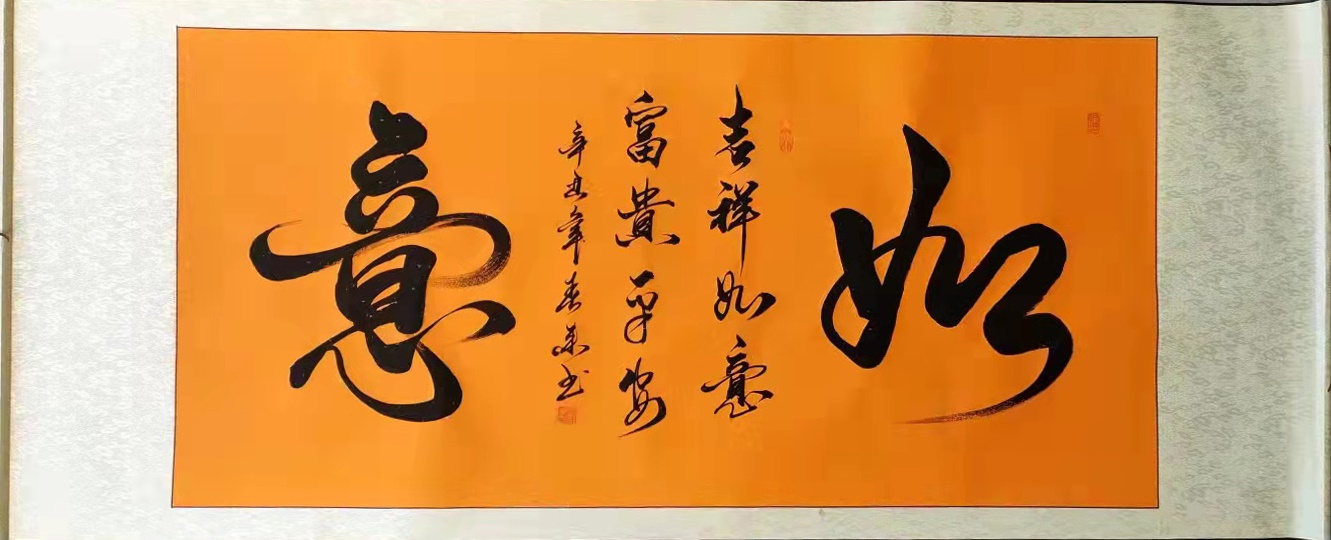 如
吉祥如意
富貴平安
辛丑年春東书
意